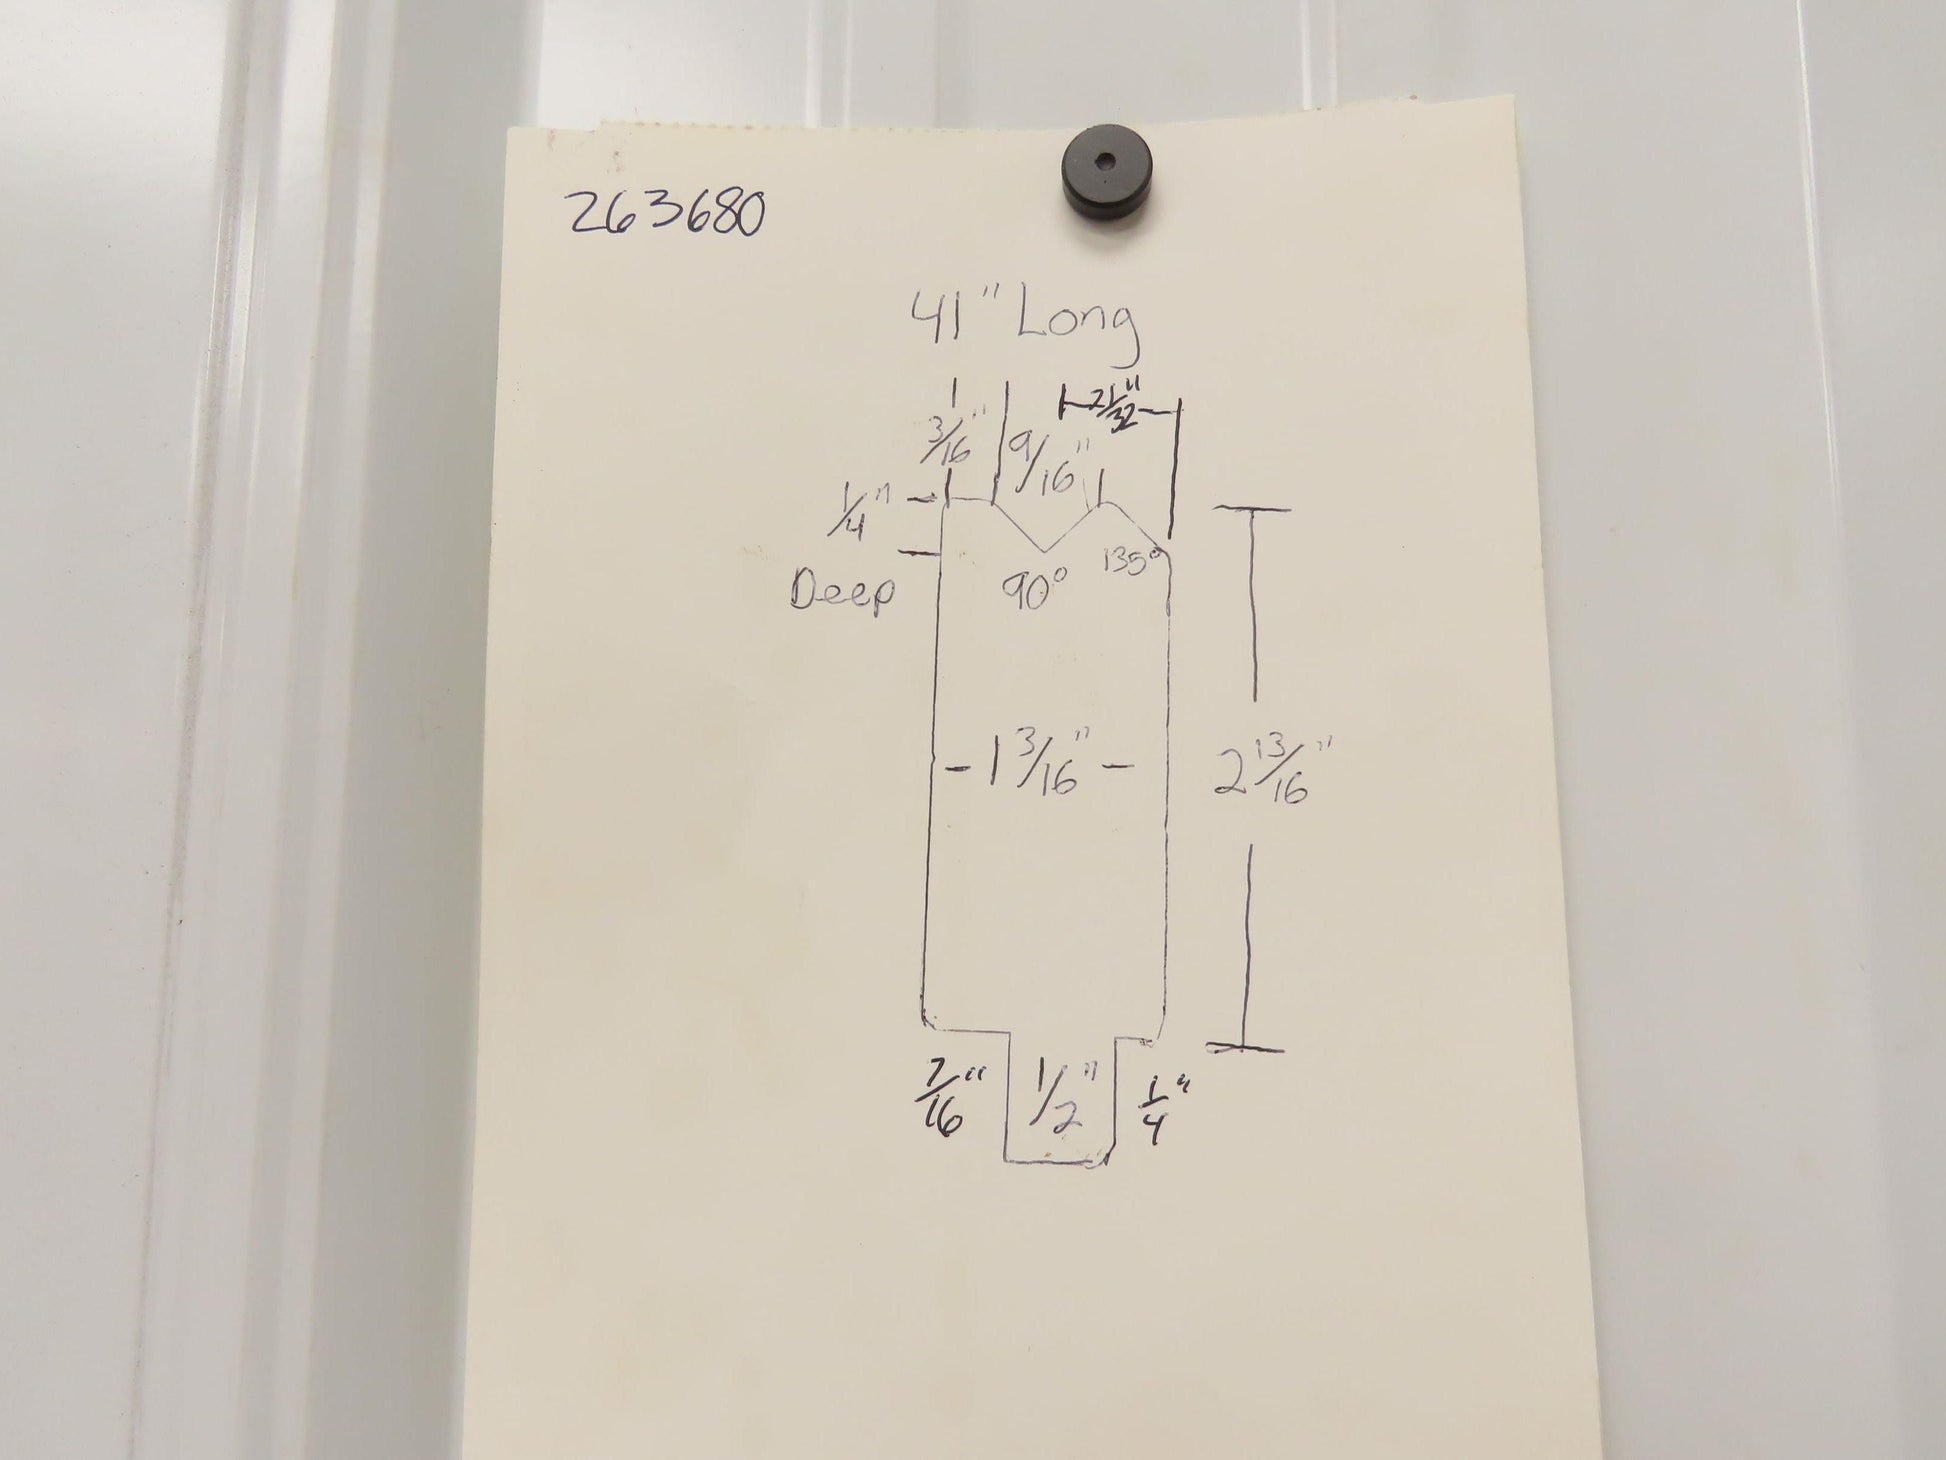 263680
41" Long
21/32"
3/16"
9/16"
1/4"
Deep
90°
135°
1 3/16"
2 13/16"
7/16"
1/2"
1/4"